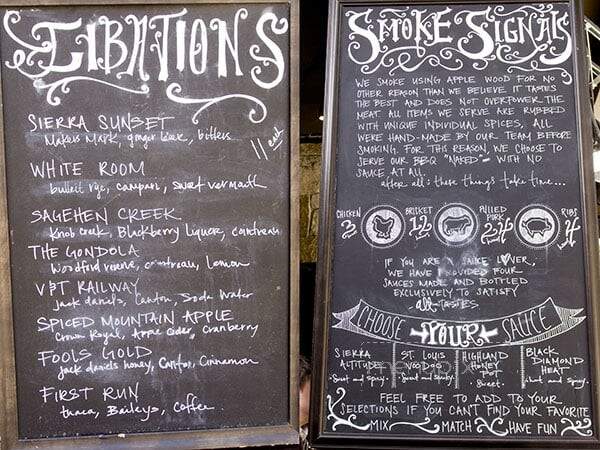 LIBATIONS
SIERRA SUNSET
Makers Mark, ginger beer, bitters
11 each
WHITE ROOM
bulleit rye, campari, sweet vermouth
SAGEHEN CREEK
Knob creek, Blackberry Liqueur, cointreau
THE GONDOLA
Woodford reserve, cointreau, Lemon
V&T RAILWAY
jack daniels, Canton, Soda Water
SPICED MOUNTAIN APPLE
Crown Royal, Apple Cider, cranberry
FOOLS GOLD
jack daniels honey, Canton, Cinnamon
FIRST RUN
tuaca, Baileys, Coffee
SMOKE SIGNALS
WE SMOKE USING APPLE WOOD FOR NO
OTHER REASON THAN WE BELIEVE IT TASTES
THE BEST AND DOES NOT OVERPOWER THE
MEAT. ALL ITEMS WE SERVE ARE RUBBED
WITH UNIQUE INDIVIDUAL SPICES, ALL
WERE HAND-MADE BY OUR TEAM BEFORE
SMOKING. FOR THIS REASON, WE CHOOSE TO
SERVE OUR BBQ "NAKED" - WITH NO
SAUCE AT ALL.
after all: these things take time...
CHICKEN BRISKET PULLED PORK RIBS
3 12 4
IF YOU ARE A SAUCE LOVER,
WE HAVE PROVIDED FOUR
SAUCES MADE AND BOTTLED
EXCLUSIVELY TO SATISFY
all TASTES
CHOOSE YOUR SAUCE
SIERRA ALTITUDE Sweet and spicy.
ST. LOUIS VOODOO Sweet and smoky
HIGHLAND HONEY POT Sweet.
BLACK DIAMOND HEAT hot and spicy.
FEEL FREE TO ADD TO YOUR
SELECTIONS IF YOU CAN'T FIND YOUR FAVORITE
MIX MATCH HAVE FUN